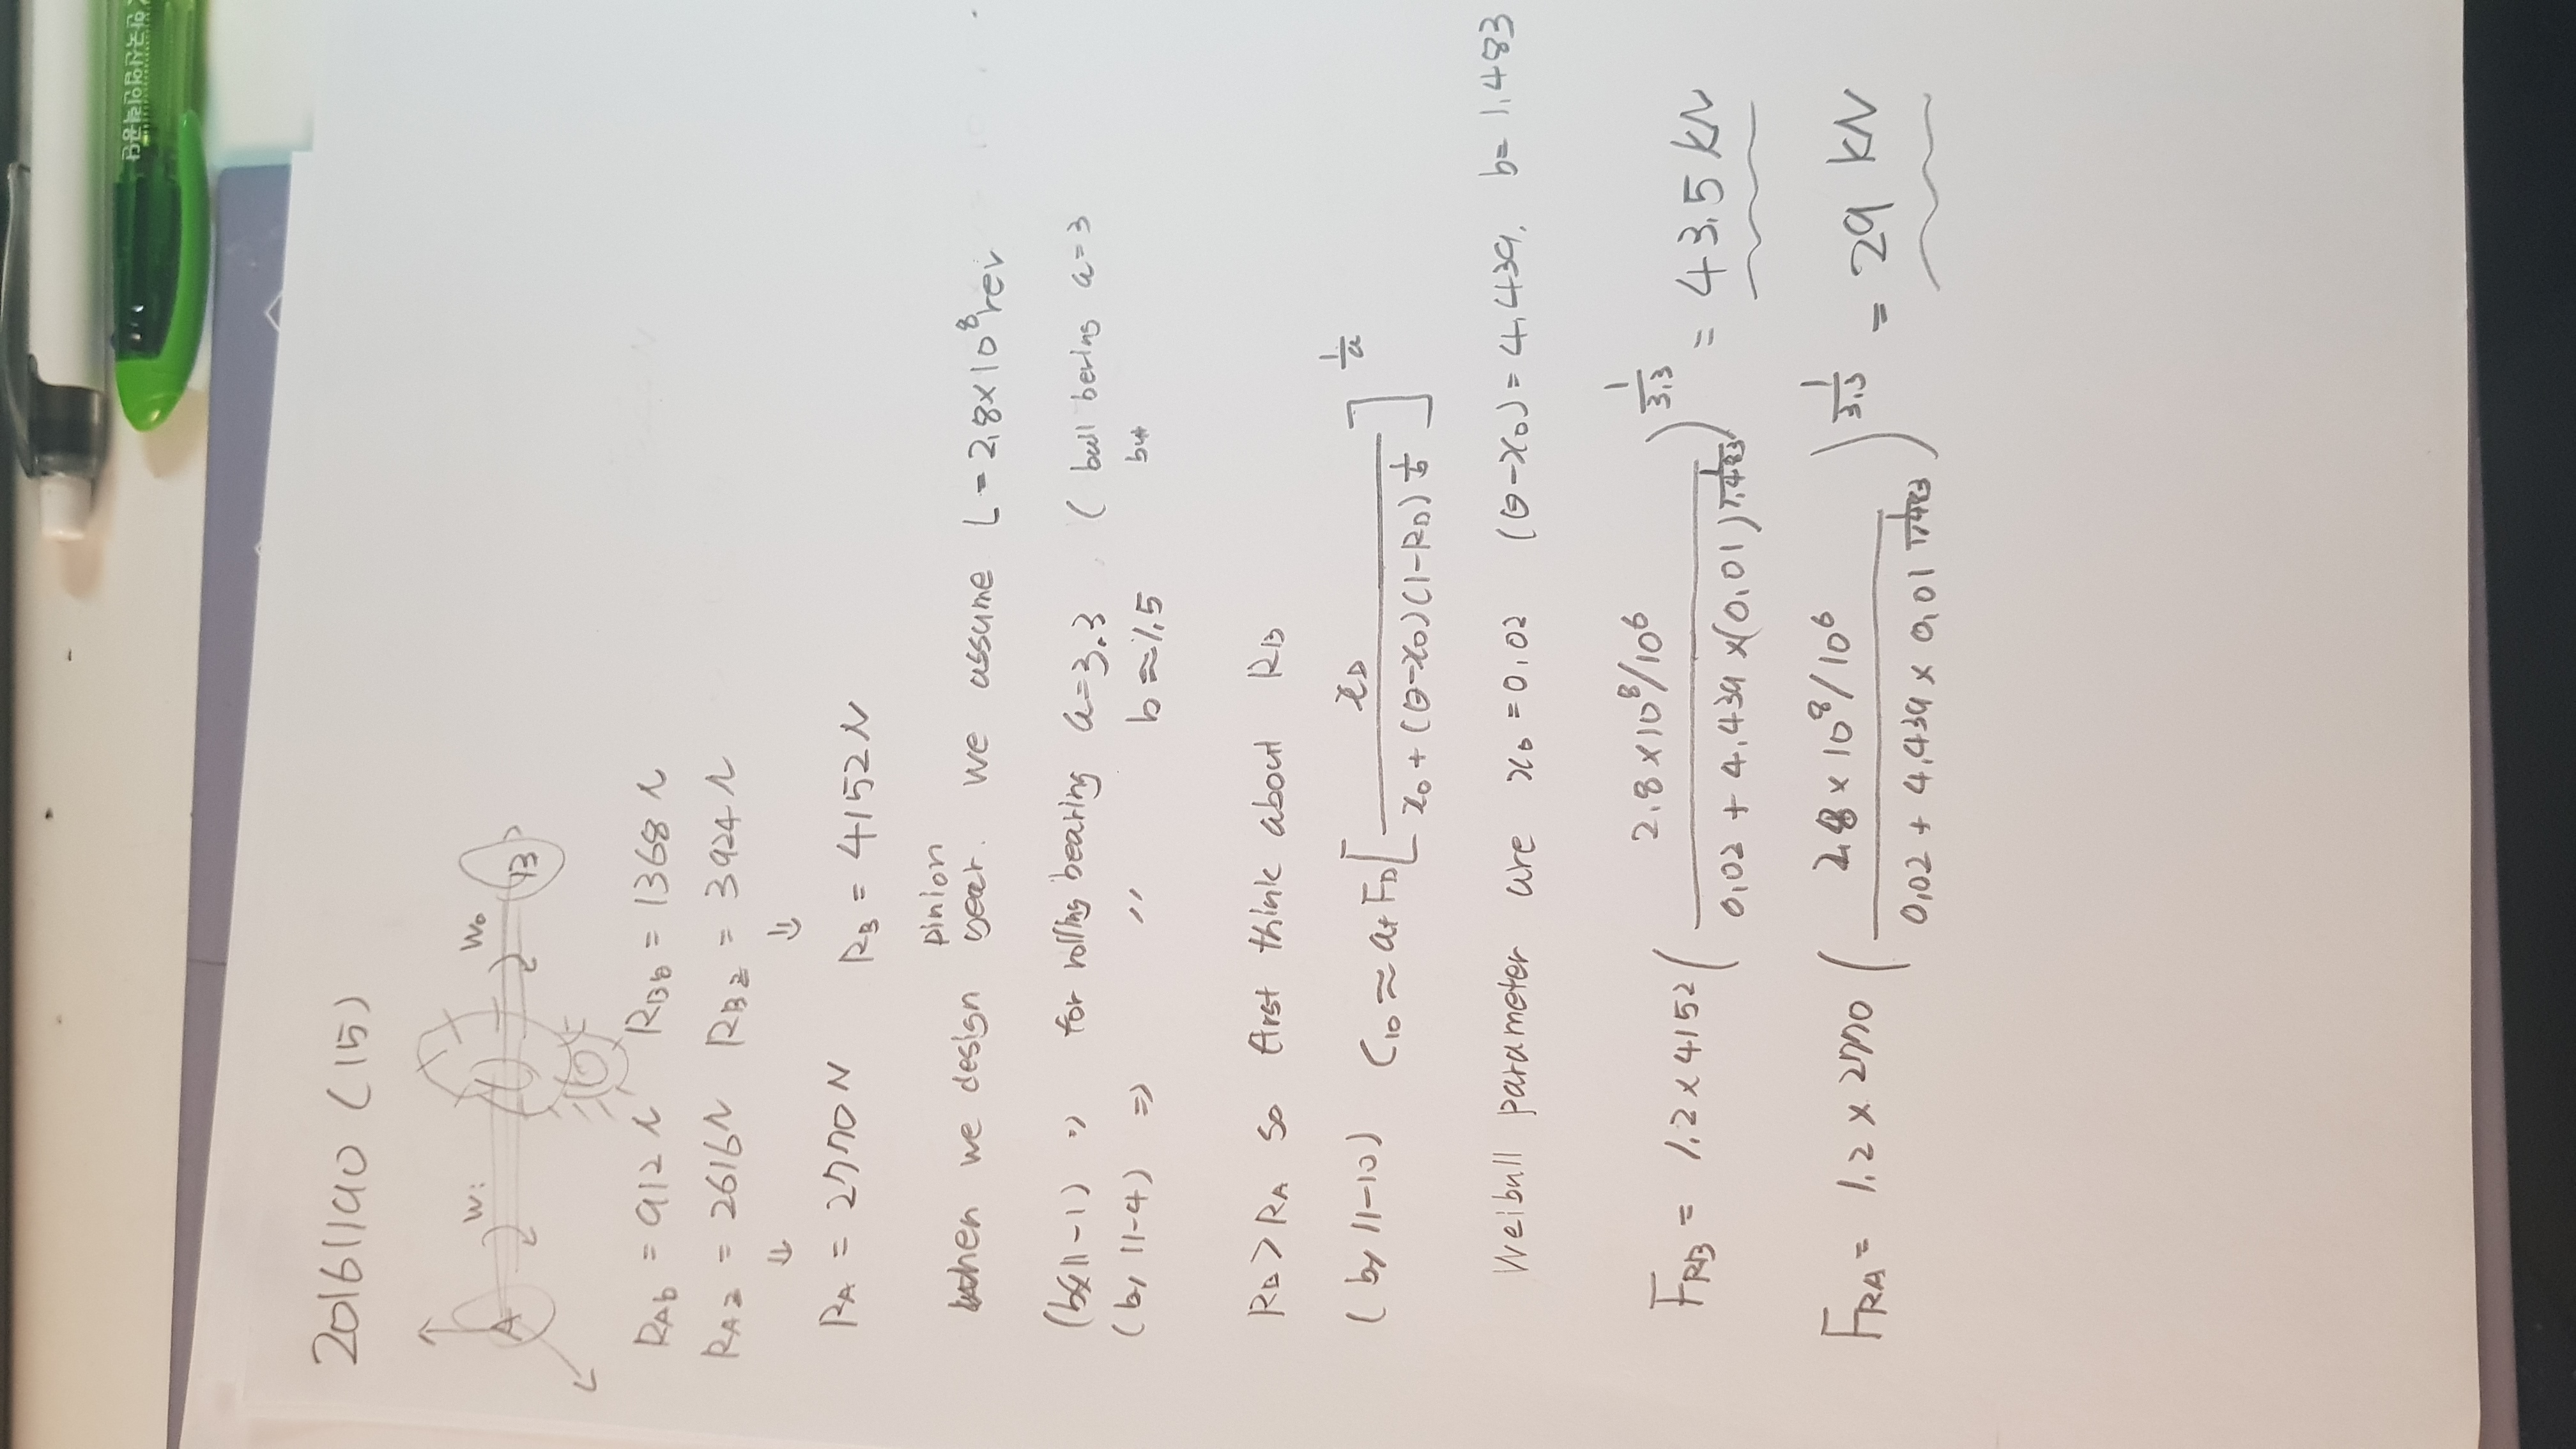 20161190 (15)
A Wi Wo B
RAb = 912 N RBb = 1368 N
RAz = 2616N RBz = 3924 N
⇓ ⇓
RA = 2770N RB = 4152N
pinion
when we design gear. we assume L = 2.8×10⁸rev
(by 11-1) ⇒ for rolling bearing a=3.3 ( ball bering a=3
(by 11-4) ⇒〃 b≈1.5 but
RB>RA so first think about RB
(by 11-10) C10 ≈ af FD[ xD / x0 + (θ-x0)(1-RD)^1/b ]^1/a
Weibull parameter are x0 = 0.02 (θ-x0) = 4.439, b= 1.483
FRB = 1.2×4152( 2.8×10⁸/10⁶ / 0.02 + 4.439×(0.01)^1/1.483 )^1/3.3 = 43.5 kN
FRA = 1.2×2770 ( 2.8×10⁸/10⁶ / 0.02 + 4.439× 0.01^1/1.483 )^1/3.3 = 29 kN